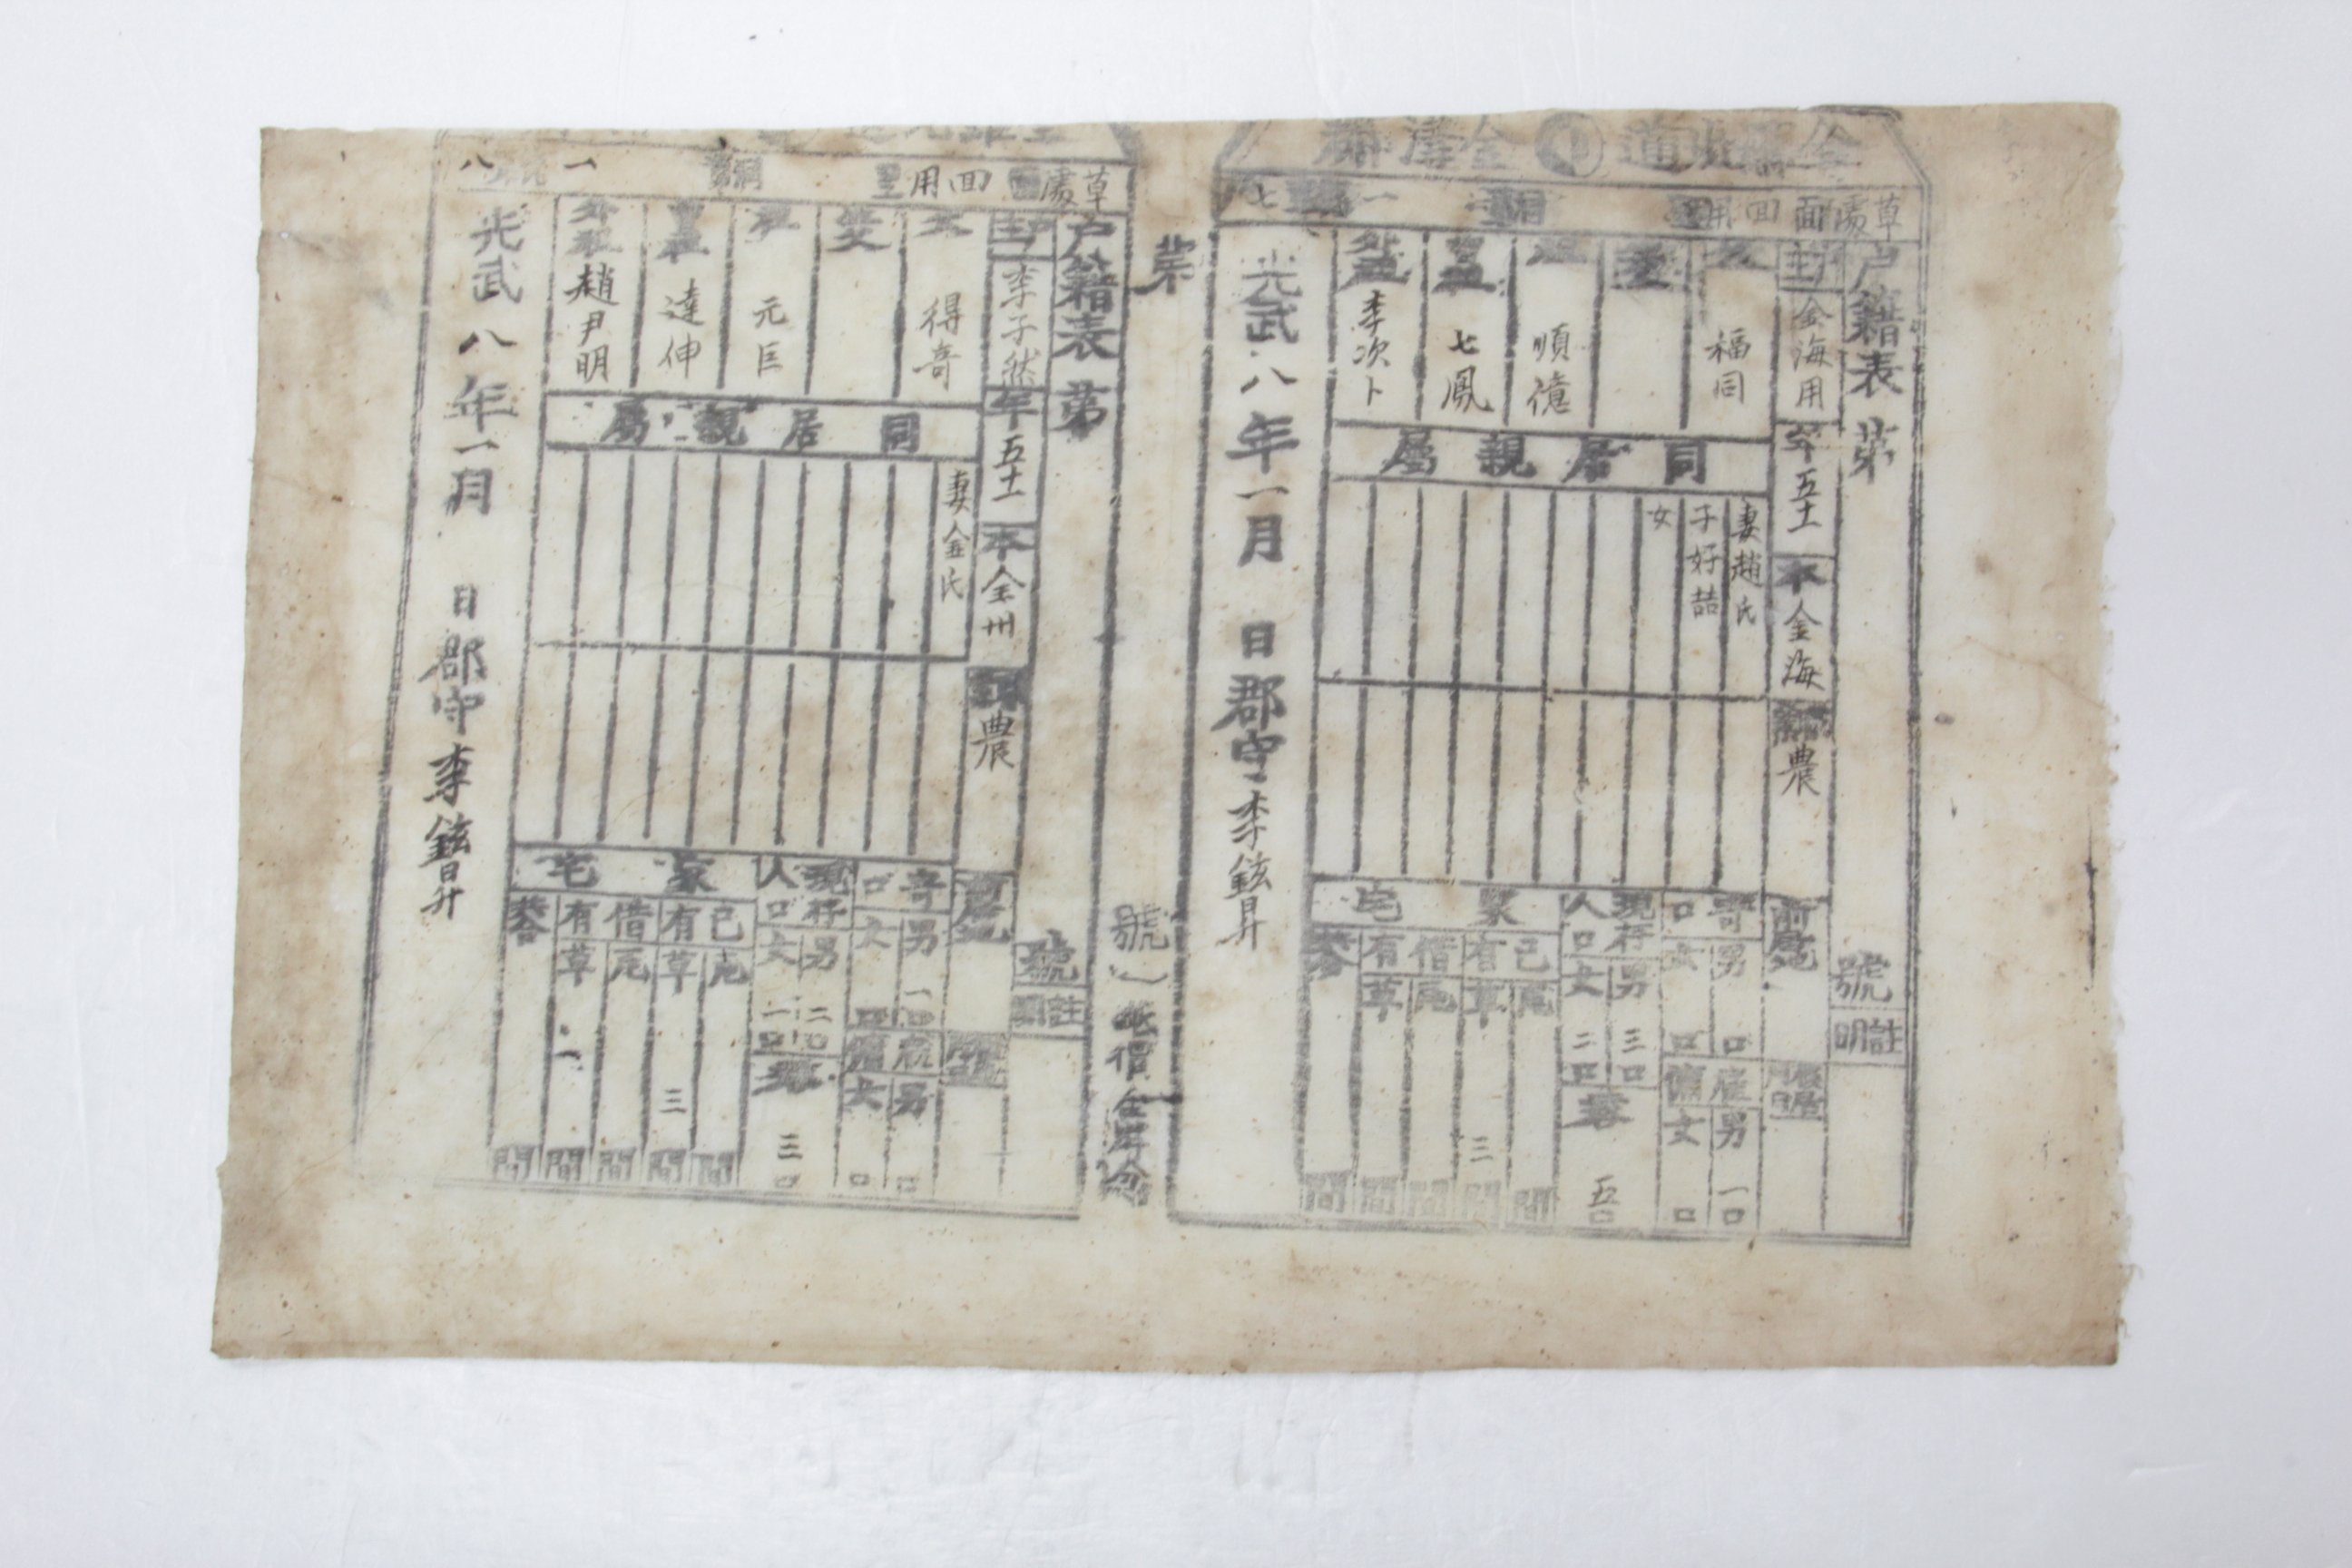 全羅北道
草處面 回用里
一 七
戶籍表 第 號
註明
戶主 金海用
年 五十一
本 金海
農
父 福同
生父
祖 順億
曾祖 七鳳
外祖 李次卜
同居親屬
妻趙氏
子好喆
女
寄口 男 口 女 口
雇傭 男 一口 女 口
現存人口 男 三口 女 二口
五口
家宅
己有 瓦 間 草 三 間
借有 瓦 間 草 間
間
光武八年一月 日 郡守 李鉉昇
第 號
紙價
草處面 回用里
一 八
戶籍表 第 號
註明
戶主 李子然
年 五十一
本 全州
農
父 得奇
生父
祖 元巨
曾祖 達伸
外祖 趙尹明
同居親屬
妻金氏
寄口 男 一口 女 口
男 口 女 口
現存人口 男 二口 女 一口
三口
家宅
己有 瓦 間 草 三 間
借有 瓦 間 草 間
間
光武八年一月 日 郡守 李鉉昇